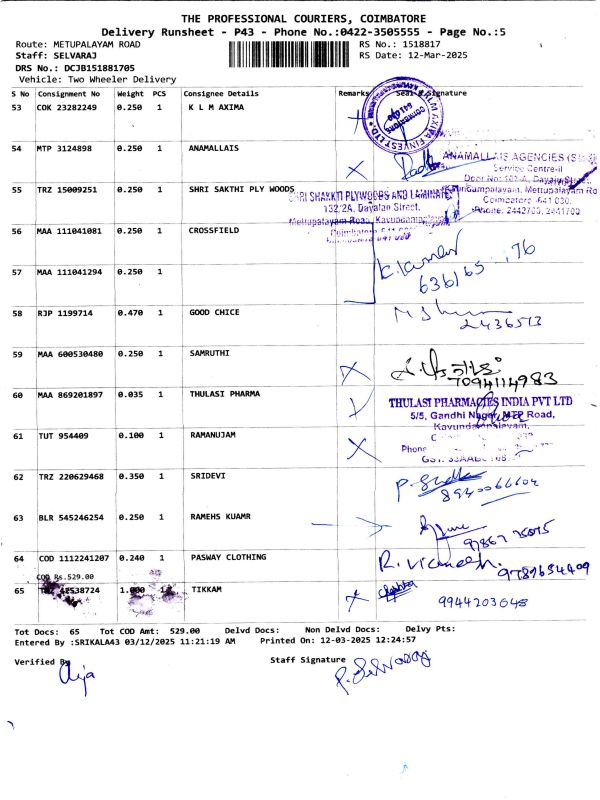 THE PROFESSIONAL COURIERS, COIMBATORE
Delivery Runsheet - P43 - Phone No.:0422-3505555 - Page No.:5
Route: METUPALAYAM ROAD RS No.: 1518817
Staff: SELVARAJ RS Date: 12-Mar-2025
DRS No.: DCJB151881705
Vehicle: Two Wheeler Delivery
S No Consignment No Weight PCS Consignee Details Remarks Seal & Signature
53 COK 23282249 0.250 1 K L M AXIMA
54 MTP 3124898 0.250 1 ANAMALLAIS
ANAMALLAIS AGENCIES
Service Centre-II
55 TRZ 15009251 0.250 1 SHRI SAKTHI PLY WOODS
SHRI SHAKKTI PLYWOODS AND LAMINATES
132/2A, Dayalan Street,
Mettupalayam Road, Kavundampalayam
Coimbatore 641 030.
Phone: 2442700, 2441700
56 MAA 111041081 0.250 1 CROSSFIELD
57 MAA 111041294 0.250 1
58 RJP 1199714 0.470 1 GOOD CHICE
2436573
59 MAA 600530480 0.250 1 SAMRUTHI
7094114983
60 MAA 869201897 0.035 1 THULASI PHARMA
THULASI PHARMACIES INDIA PVT LTD
5/5, Gandhi Nagar, MTP Road,
Kavundampalayam,
61 TUT 954409 0.100 1 RAMANUJAM
Phone
62 TRZ 220629468 0.350 1 SRIDEVI
8940066604
63 BLR 545246254 0.250 1 RAMEHS KUAMR
64 COD 1112241207 0.240 1 PASWAY CLOTHING
COD Rs.529.00
9789634409
65 42538724 1.000 TIKKAM
9944203648
Tot Docs: 65 Tot COD Amt: 529.00 Delvd Docs: Non Delvd Docs: Delvy Pts:
Entered By :SRIKALA43 03/12/2025 11:21:19 AM Printed On: 12-03-2025 12:24:57
Verified By Staff Signature